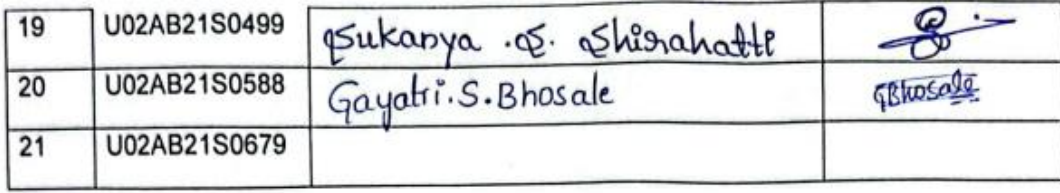 19 U02AB21S0499 Sukanya .S. Shirahatti
20 U02AB21S0588 Gayatri.S.Bhosale GBhosale
21 U02AB21S0679